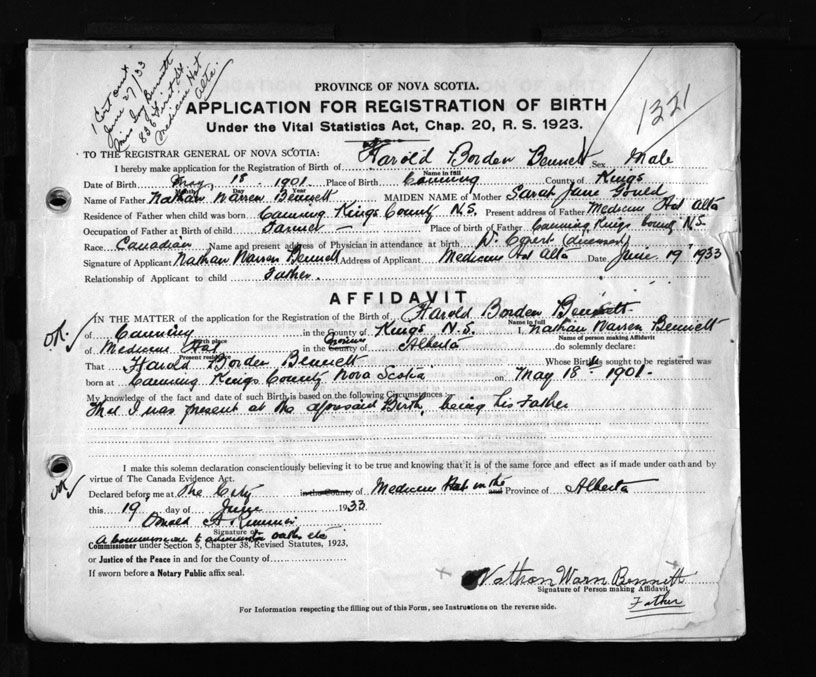 1 Cert
June 27/33
Miss Bennett
836 First St
Medicine Hat
Alta.
1321
PROVINCE OF NOVA SCOTIA.
APPLICATION FOR REGISTRATION OF BIRTH
Under the Vital Statistics Act, Chap. 20, R. S. 1923.
TO THE REGISTRAR GENERAL OF NOVA SCOTIA:
I hereby make application for the Registration of Birth of Harold Borden Bennett Sex Male
Name in full
Date of Birth May 18 1901. Place of Birth Canning County of Kings
Month Day Year
Name of Father Nathan Warren Bennett MAIDEN NAME of Mother Sarah Jane Gould
Residence of Father when child was born Canning Kings County N.S. Present address of Father Medicine Hat Alta
Occupation of Father at Birth of child Farmer Place of birth of Father Canning Kings County N.S.
Race Canadian Name and present address of Physician in attendance at birth Dr (deceased)
Signature of Applicant Nathan Warren Bennett Address of Applicant Medicine Hat Alta Date June 19 1933
Relationship of Applicant to child Father.
AFFIDAVIT
IN THE MATTER of the application for the Registration of the Birth of Harold Borden Bennett
Name in full
O.K. of Canning in the County of Kings N.S. I, Nathan Warren Bennett
Birth place Name of person making Affidavit
of Medicine Hat in the County Province of Alberta do solemnly declare:
Present residence
That Harold Borden Bennett Whose Birth is sought to be registered was
born at Canning Kings County Nova Scotia on May 18th 1901.
My knowledge of the fact and date of such Birth is based on the following Circumstances:
That I was present at the aforesaid Birth, being his Father
I make this solemn declaration conscientiously believing it to be true and knowing that it is of the same force and effect as if made under oath and by
virtue of The Canada Evidence Act.
OK Declared before me at The City in the County of Medicine Hat in the and Province of Alberta
this 19 day of June 1933.
Donald A
Signature of
A Commissioner to administer oaths etc
Commissioner under Section 5, Chapter 38, Revised Statutes, 1923,
or Justice of the Peace in and for the County of
If sworn before a Notary Public affix seal.
x Nathan Warn Bennett x
Signature of Person making Affidavit
Father
For Information respecting the filling out of this Form, see Instructions on the reverse side.